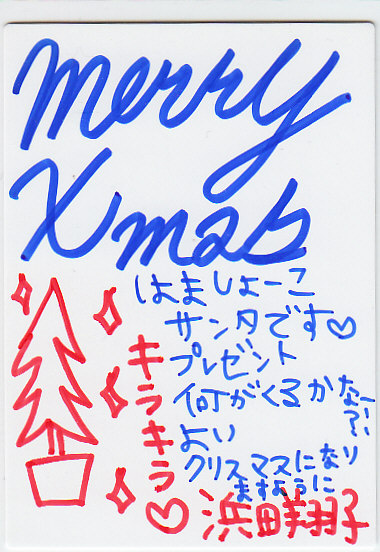 Merry
Xmas
はましょーこ
サンタです♡
プレゼント
何がくるかなー?!
よい
クリスマスになり
ますように
キラキラ
♡浜田翔子